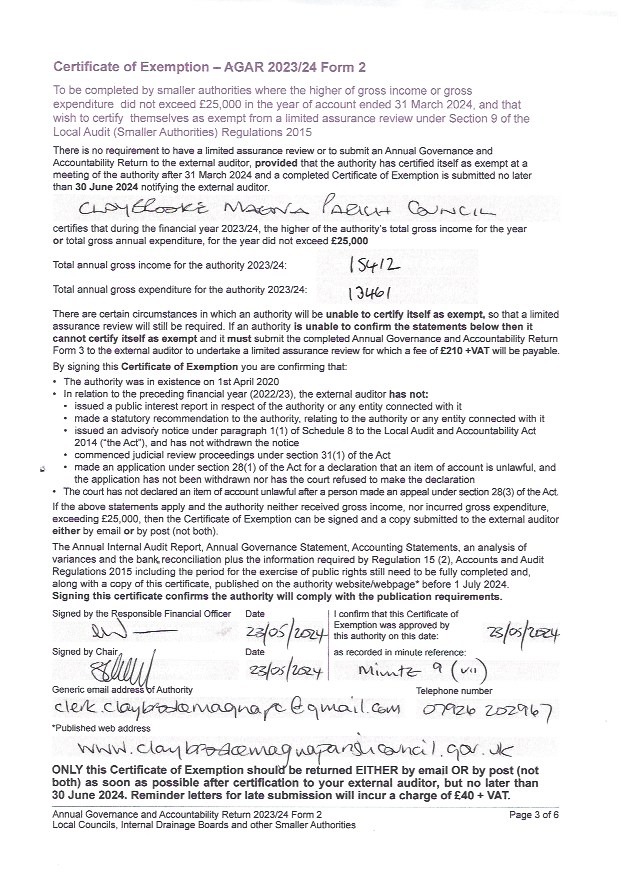 Certificate of Exemption – AGAR 2023/24 Form 2
To be completed by smaller authorities where the higher of gross income or gross
expenditure did not exceed £25,000 in the year of account ended 31 March 2024, and that
wish to certify themselves as exempt from a limited assurance review under Section 9 of the
Local Audit (Smaller Authorities) Regulations 2015
There is no requirement to have a limited assurance review or to submit an Annual Governance and
Accountability Return to the external auditor, provided that the authority has certified itself as exempt at a
meeting of the authority after 31 March 2024 and a completed Certificate of Exemption is submitted no later
than 30 June 2024 notifying the external auditor.
CLAYBROOKE MAGNA PARISH COUNCIL
certifies that during the financial year 2023/24, the higher of the authority's total gross income for the year
or total gross annual expenditure, for the year did not exceed £25,000
Total annual gross income for the authority 2023/24: 15412
Total annual gross expenditure for the authority 2023/24: 13461
There are certain circumstances in which an authority will be unable to certify itself as exempt, so that a limited
assurance review will still be required. If an authority is unable to confirm the statements below then it
cannot certify itself as exempt and it must submit the completed Annual Governance and Accountability Return
Form 3 to the external auditor to undertake a limited assurance review for which a fee of £210 +VAT will be payable.
By signing this Certificate of Exemption you are confirming that:
• The authority was in existence on 1st April 2020
• In relation to the preceding financial year (2022/23), the external auditor has not:
• issued a public interest report in respect of the authority or any entity connected with it
• made a statutory recommendation to the authority, relating to the authority or any entity connected with it
• issued an advisory notice under paragraph 1(1) of Schedule 8 to the Local Audit and Accountability Act
2014 ("the Act"), and has not withdrawn the notice
• commenced judicial review proceedings under section 31(1) of the Act
• made an application under section 28(1) of the Act for a declaration that an item of account is unlawful, and
the application has not been withdrawn nor has the court refused to make the declaration
• The court has not declared an item of account unlawful after a person made an appeal under section 28(3) of the Act.
If the above statements apply and the authority neither received gross income, nor incurred gross expenditure,
exceeding £25,000, then the Certificate of Exemption can be signed and a copy submitted to the external auditor
either by email or by post (not both).
The Annual Internal Audit Report, Annual Governance Statement, Accounting Statements, an analysis of
variances and the bank reconciliation plus the information required by Regulation 15 (2), Accounts and Audit
Regulations 2015 including the period for the exercise of public rights still need to be fully completed and,
along with a copy of this certificate, published on the authority website/webpage* before 1 July 2024.
Signing this certificate confirms the authority will comply with the publication requirements.
Signed by the Responsible Financial Officer Date I confirm that this Certificate of
Exemption was approved by
this authority on this date:
23/05/2024 23/05/2024
Signed by Chair Date as recorded in minute reference:
23/05/2024 Minute 9 (vii)
Generic email address of Authority Telephone number
clerk.claybrookemagnapc@gmail.com 07926 202967
*Published web address
www.claybrookemagnaparishcouncil.gov.uk
ONLY this Certificate of Exemption should be returned EITHER by email OR by post (not
both) as soon as possible after certification to your external auditor, but no later than
30 June 2024. Reminder letters for late submission will incur a charge of £40 + VAT.
Annual Governance and Accountability Return 2023/24 Form 2 Page 3 of 6
Local Councils, Internal Drainage Boards and other Smaller Authorities